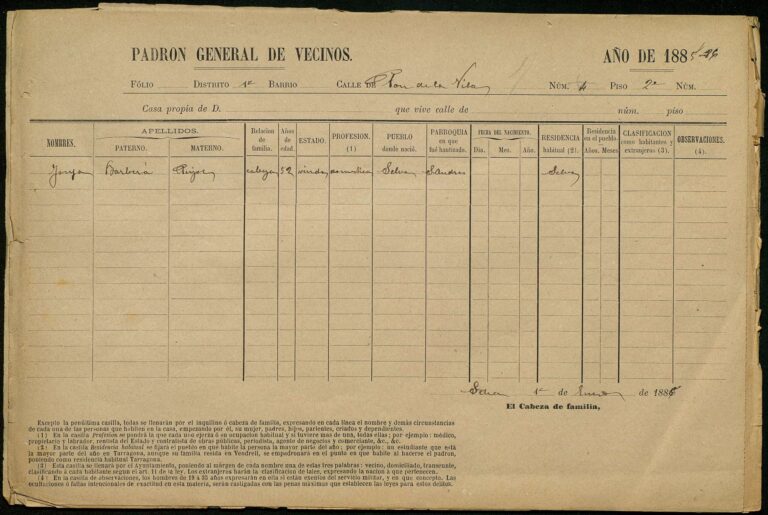 PADRON GENERAL DE VECINOS. AÑO DE 1885-86
FÓLIO DISTRITO 1º BARRIO CALLE DE Pou de la Vila NÚM. 4 PISO 2º NÚM.
Casa propia de D. que vive calle de núm. piso
NOMBRES. APELLIDOS. PATERNO. MATERNO. Relacion de familia. Años de edad. ESTADO. PROFESION. (1) PUEBLO donde nació. PARROQUIA en que fué bautizado. FECHA DEL NACIMIENTO. Dia. Mes. Año. RESIDENCIA habitual (2). Residencia en el pueblo Años. Meses CLASIFICACION como habitantes y extranjeros (3). OBSERVACIONES. (4).
Barberá cabeza 52 viuda domestica Selva S Andres Selva
Selva 1º de Enero de 1886
El Cabeza de familia,
Excepto la penúltima casilla, todas se llenarán por el inquilino ó cabeza de familia, expresando en cada línea el nombre y demás circunstancias
de cada una de las personas que habiten en la casa, empezando por él, su mujer, padres, hijos, parientes, criados y dependientes.
(1) En la casilla Profesion se pondrá la que cada uno ejerza ó su ocupacion habitual y si tuviere mas de una, todas ellas; por ejemplo: médico,
propietario y labrador, rentista del Estado y contratista de obras públicas, periodista, agente de negocios y comerciante, &c., &c.
(2) En la casilla Residencia habitual se fijará el pueblo en que habite la persona la mayor parte del año; por ejemplo: un estudiante que está
la mayor parte del año en Tarragona, aunque su familia resida en Vendrell, se empadronará en el punto en que habite al hacerse el padron,
poniendo como residencia habitual Tarragona.
(3) Esta casilla se llenará por el Ayuntamiento, poniendo al márgen de cada nombre una de estas tres palabras: vecino, domiciliado, transeunte,
clasificando á cada habitante segun el art. 11 de la ley. Los extranjeros harán la clasificacion de tales, expresando la nacion á que pertenecen.
(4) En la casilla de observaciones, los hombres de 19 á 35 años expresarán en ella si están exentos del servicio militar, y en que concepto. Las
ocultaciones ó faltas intencionales de exactitud en esta materia, serán castigadas con las penas máximas que establecen las leyes para estos delitos.